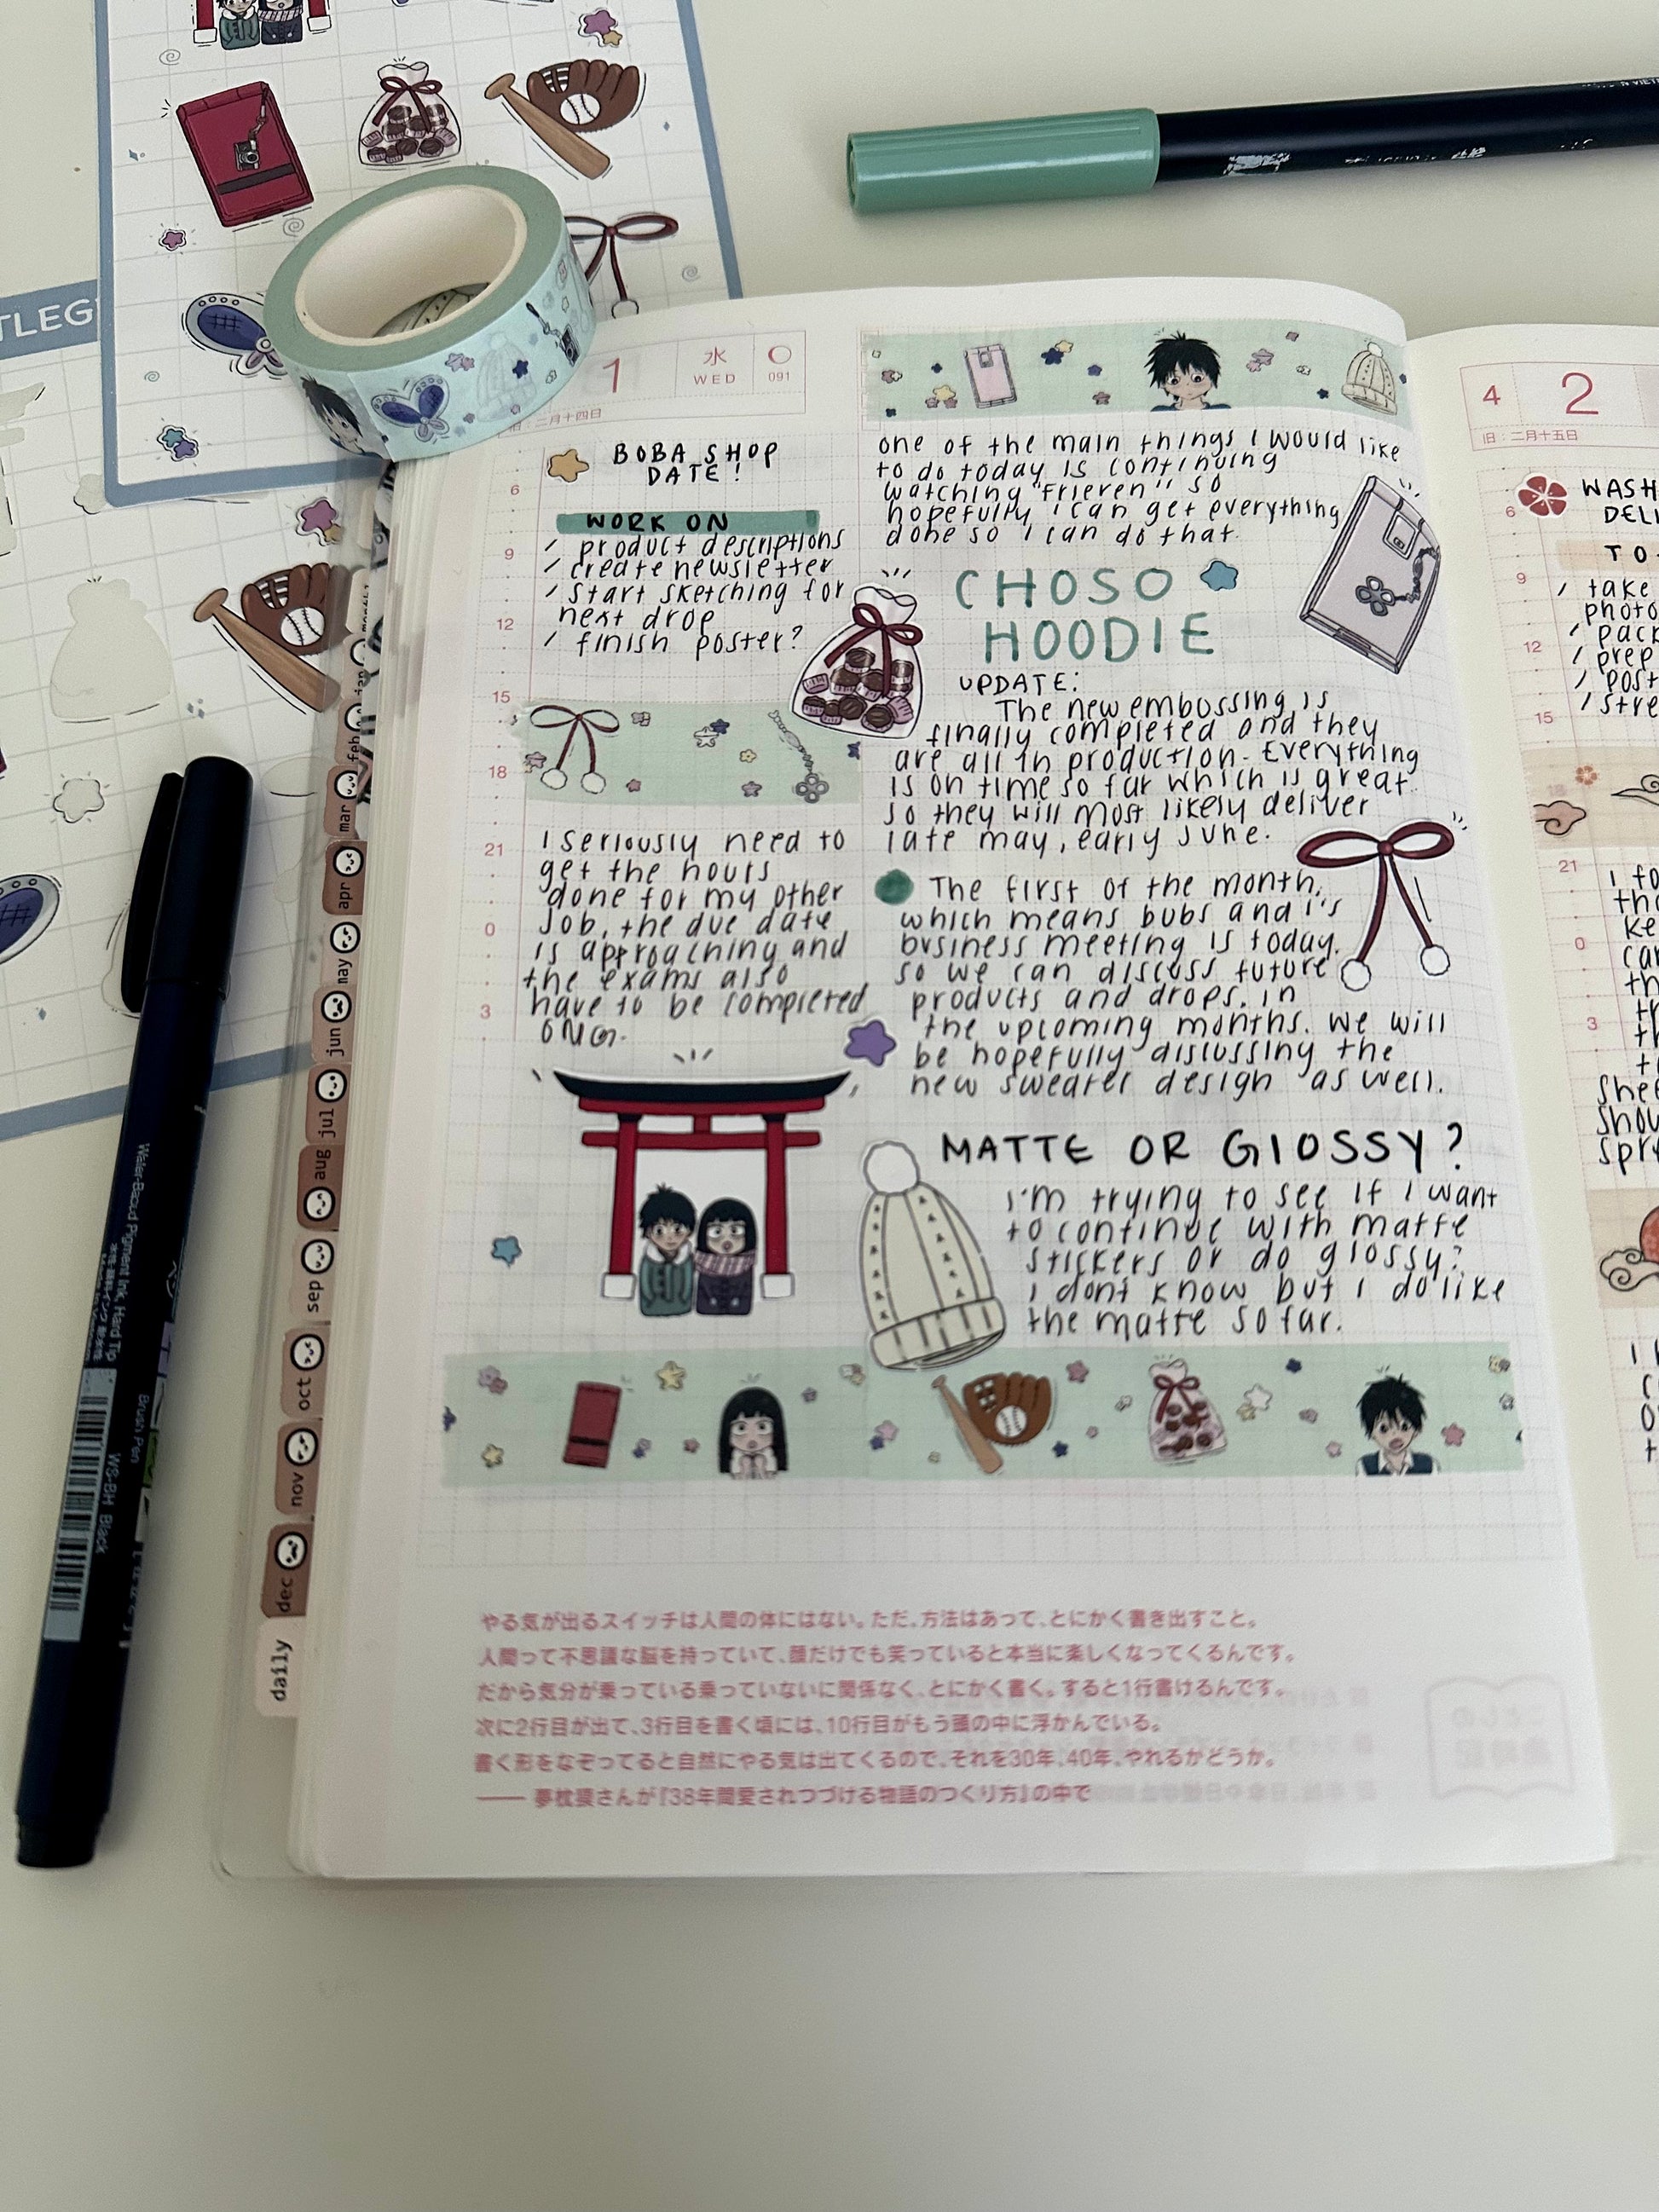 TLEG
1
水
WED
091
二月十四日
BOBA SHOP
DATE!
WORK ON
/ product descriptions
/ create newsletter
/ start sketching for
next drop
/ finish poster?
6
9
12
15
18
21
0
3
I seriously need to
get the hours
done for my other
job, the due date
is approaching and
the exams also
have to be completed
OMG.
one of the main things I would like
to do today is continuing
watching "Frieren" so
hopefully I can get everything
done so I can do that.
CHOSO
HOODIE
UPDATE:
The new embossing is
finally completed and they
are all in production. Everything
is on time so far which is great
so they will most likely deliver
late may, early June.
The first of the month,
which means bubs and I's
business meeting is today.
so we can discuss future
products and drops. in
the upcoming months. We will
be hopefully discussing the
new sweater design as well.
MATTE OR GLOSSY?
I'm trying to see if I want
to continue with matte
stickers or do glossy?
I dont know but I do like
the matte so far.
やる気が出るスイッチは人間の体にはない。ただ、方法はあって、とにかく書き出すこと。
人間って不思議な脳を持っていて、顔だけでも笑っていると本当に楽しくなってくるんです。
だから気分が乗っている乗っていないに関係なく、とにかく書く。すると1行書けるんです。
次に2行目が出て、3行目を書く頃には、10行目がもう頭の中に浮かんでいる。
書く形をなぞってると自然にやる気は出てくるので、それを30年、40年、やれるかどうか。
—— 夢枕獏さんが『38年間愛されつづける物語のつくり方』の中で
4
2
旧:二月十五日
6
9
12
15
18
21
0
3
WASH
DELI
TO
/ take
photo
/ pack
/ prep
/ post
/ stre
feb
mar
apr
may
jun
jul
aug
sep
oct
nov
dec
daily
Water-Based Pigment Ink, Hard Tip
Brush Pen
WS-BH Black